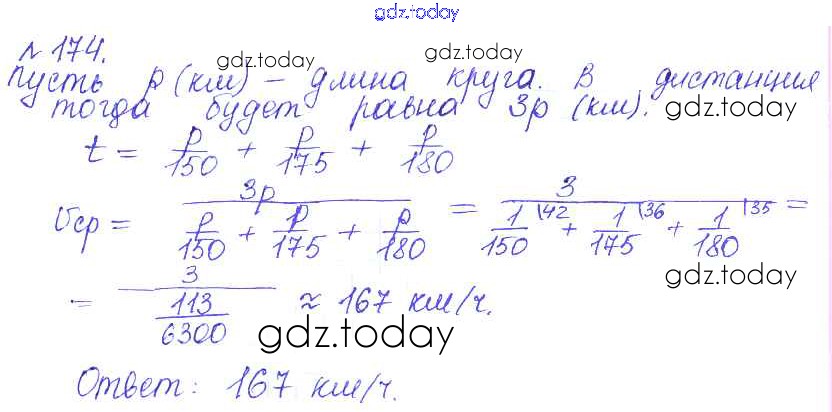 gdz.today
№ 174.
gdz.today gdz.today
Пусть p (км) – длина круга. В дистанция
тогда будет равна 3p (км). gdz.today
t = p/150 + p/175 + p/180
Vср = 3p / (p/150 + p/175 + p/180) = 3 / (1/150 \42 + 1/175 \36 + 1/180 \35) =
gdz.today
= 3 / (113/6300) ≈ 167 км/ч.
gdz.today
Ответ: 167 км/ч.